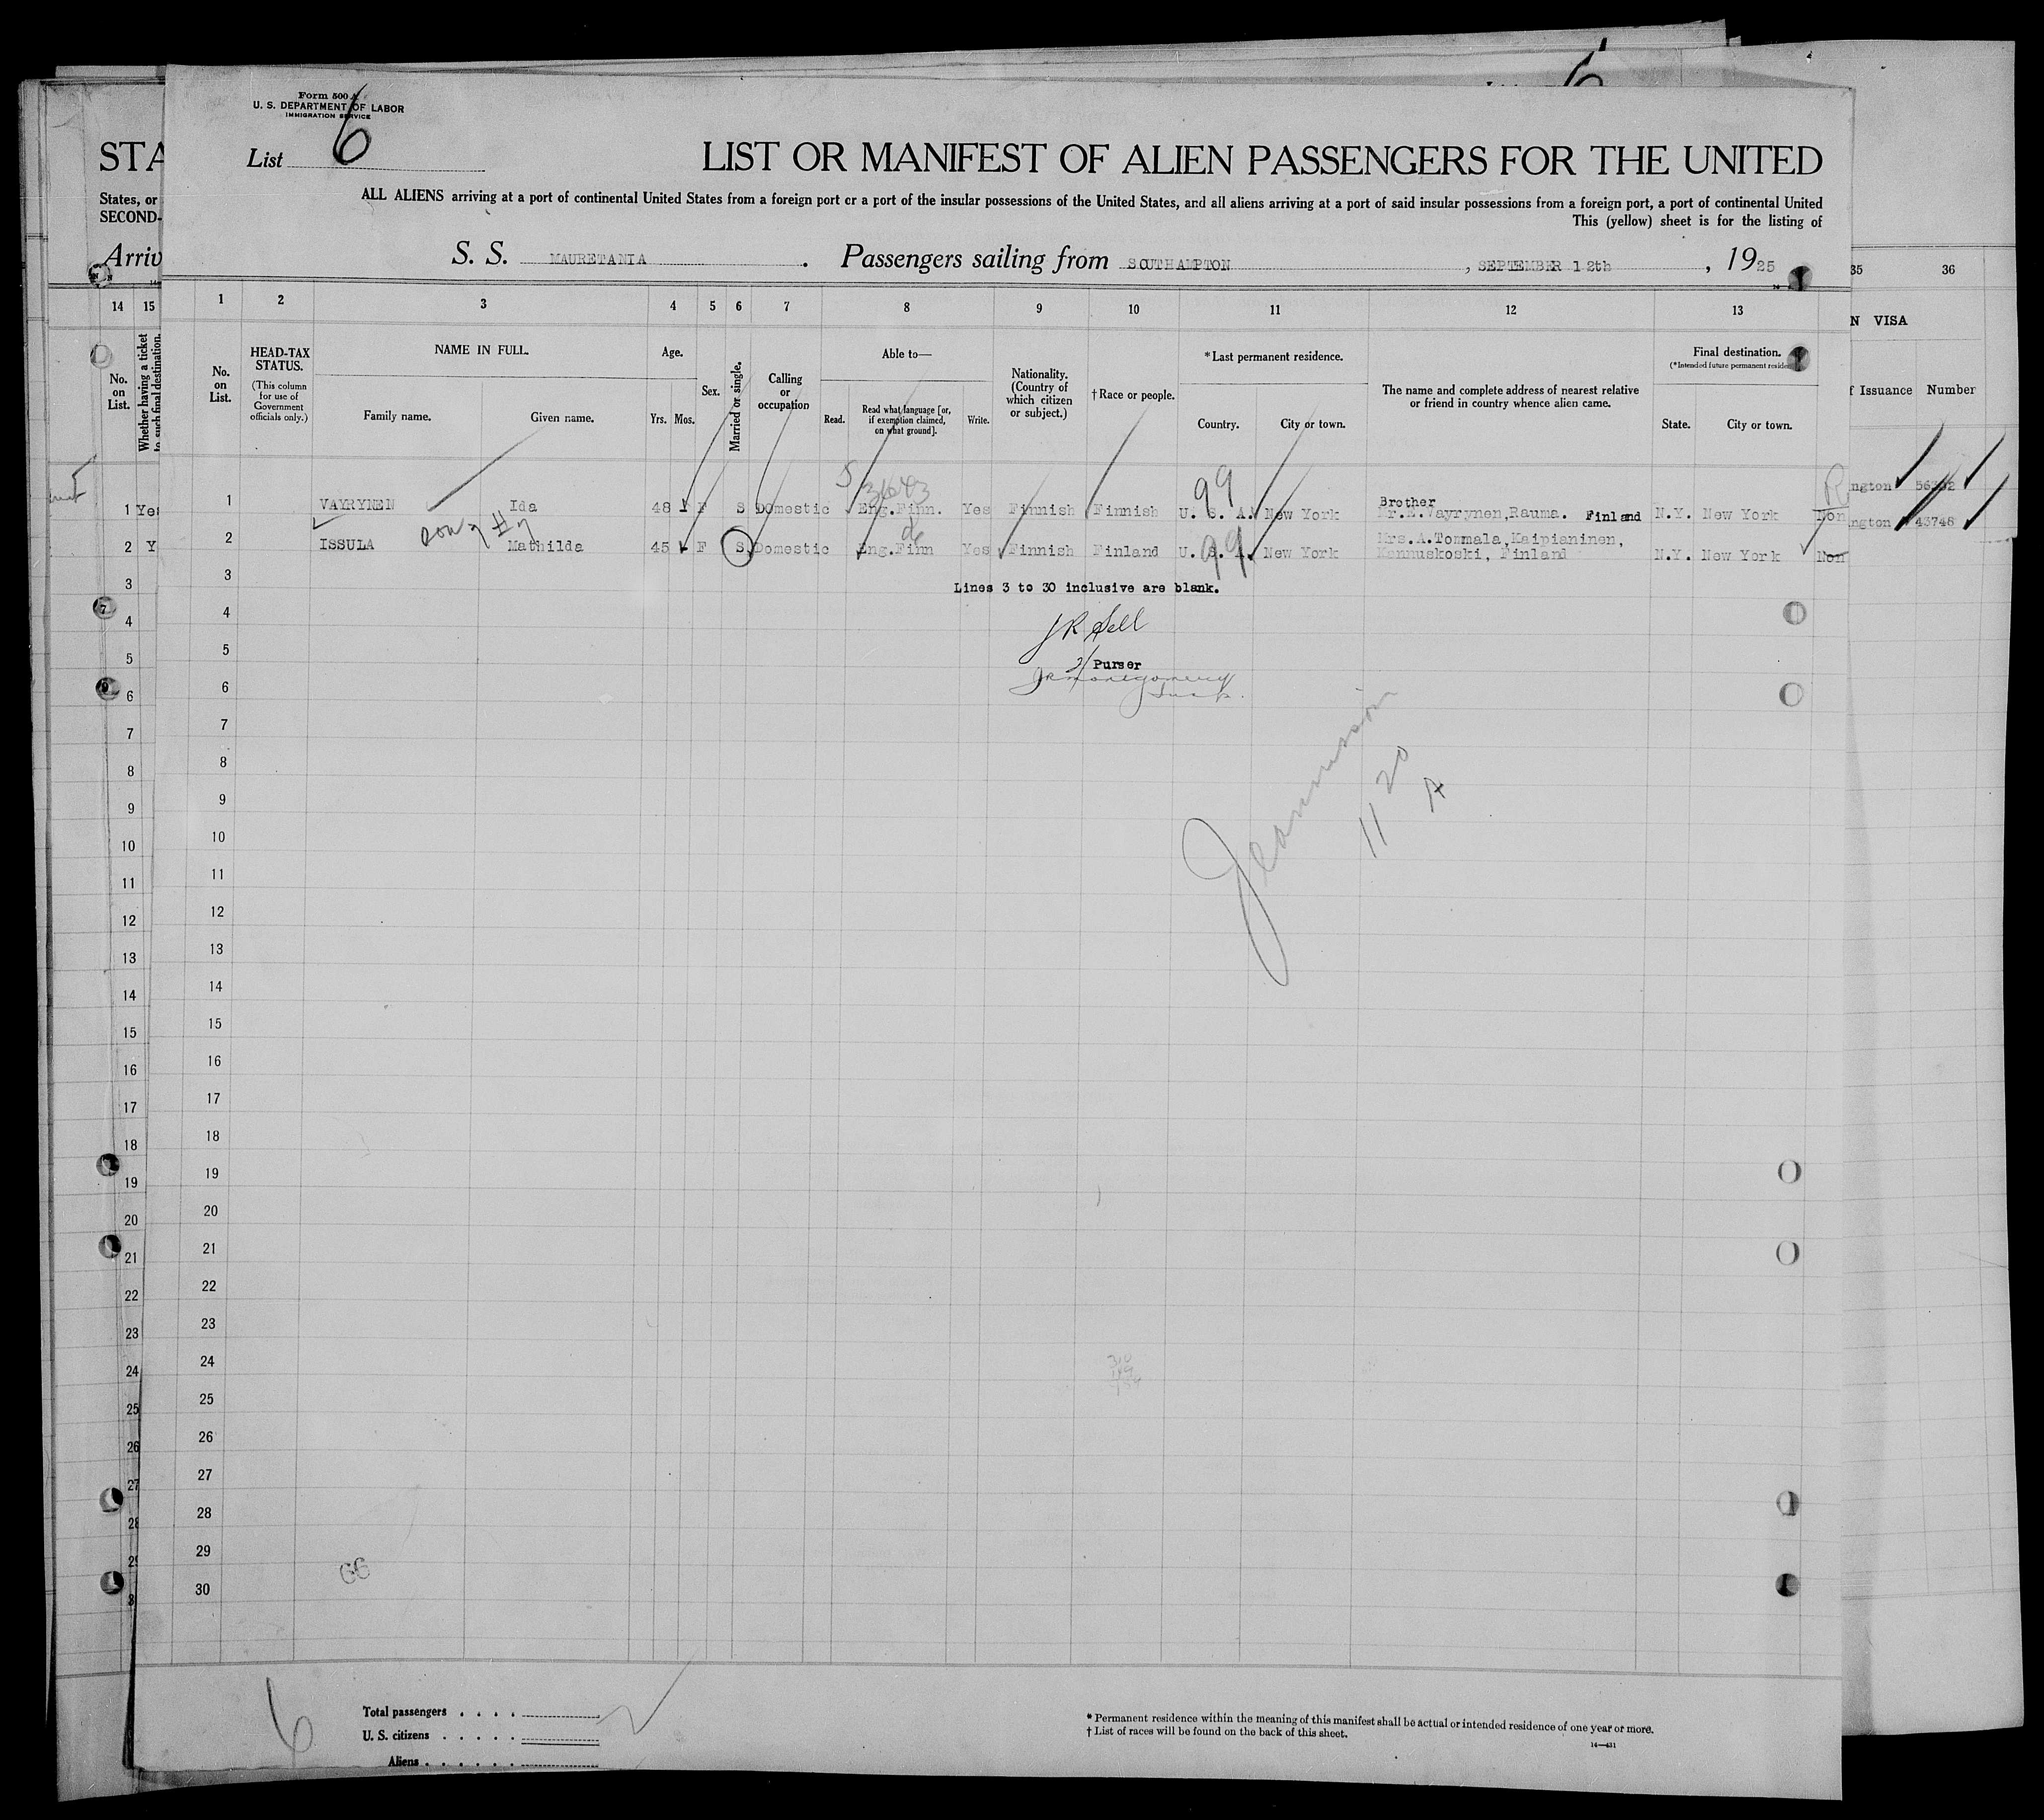 Form 500 A
U. S. DEPARTMENT OF LABOR
IMMIGRATION SERVICE
List 6
LIST OR MANIFEST OF ALIEN PASSENGERS FOR THE UNITED
ALL ALIENS arriving at a port of continental United States from a foreign port or a port of the insular possessions of the United States, and all aliens arriving at a port of said insular possessions from a foreign port, a port of continental United
This (yellow) sheet is for the listing of
S. S. MAURETANIA. Passengers sailing from SOUTHAMPTON, SEPTEMBER 12th, 1925
STA
States, or
SECOND-
Arriv
14 15
No. on List.
Whether having a ticket to such final destination.
1 2 3 4 5 6 7 8 9 10 11 12 13
35 36
N VISA
f Issuance Number
No. on List.
HEAD-TAX STATUS.
(This column for use of Government officials only.)
NAME IN FULL.
Family name. Given name.
Age.
Yrs. Mos.
Sex.
Married or single.
Calling or occupation
Able to—
Read. Read what language [or, if exemption claimed, on what ground]. Write.
Nationality. (Country of which citizen or subject.)
†Race or people.
*Last permanent residence.
Country. City or town.
The name and complete address of nearest relative or friend in country whence alien came.
Final destination.
(*Intended future permanent reside
State. City or town.
5 3643
99
1 Yes 1 VAYRYNEN Ida 48 F S Domestic Eng.Finn. Yes Finnish Finnish U. S. A. New York Brother Mr.E.Vayrynen,Rauma. Finland N.Y. New York Non ngton
2 Y 2 ISSULA Mathilda 45 F S Domestic Eng.Finn Yes Finnish Finland U. S. A. New York Mrs.A.Tommala,Kaipianinen, Kannuskoski, Finland N.Y. New York Non ngton 43748
99
3 Lines 3 to 30 inclusive are blank.
4 J R Sell
5 Purser
6 JR Montgomery
Insp.
7
8
9
10
11
12
13
14
15
16
17
18
19
20
21
22
23
24
25
26
27
28
29
30
11 20 A
310
66
6
Total passengers . . . .
U. S. citizens . . . . .
Aliens . . . . . .
* Permanent residence within the meaning of this manifest shall be actual or intended residence of one year or more.
† List of races will be found on the back of this sheet.
14—431